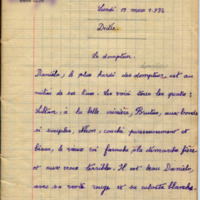 Lundi 19 mars 1934
Dictée
Le dompteur
Daniélo, le plus hardi des dompteurs est au
milieu de ses lions. Les voici tous les quatre :
Sultan, à la belle crinière, Brutus, aux bonds
si souples, Néron, couché paresseusement et
beau, le vieux roi farouche à la démarche fière
et aux yeux terribles. Il est beau Daniélo,
avec sa veste rouge et sa culotte blanche.